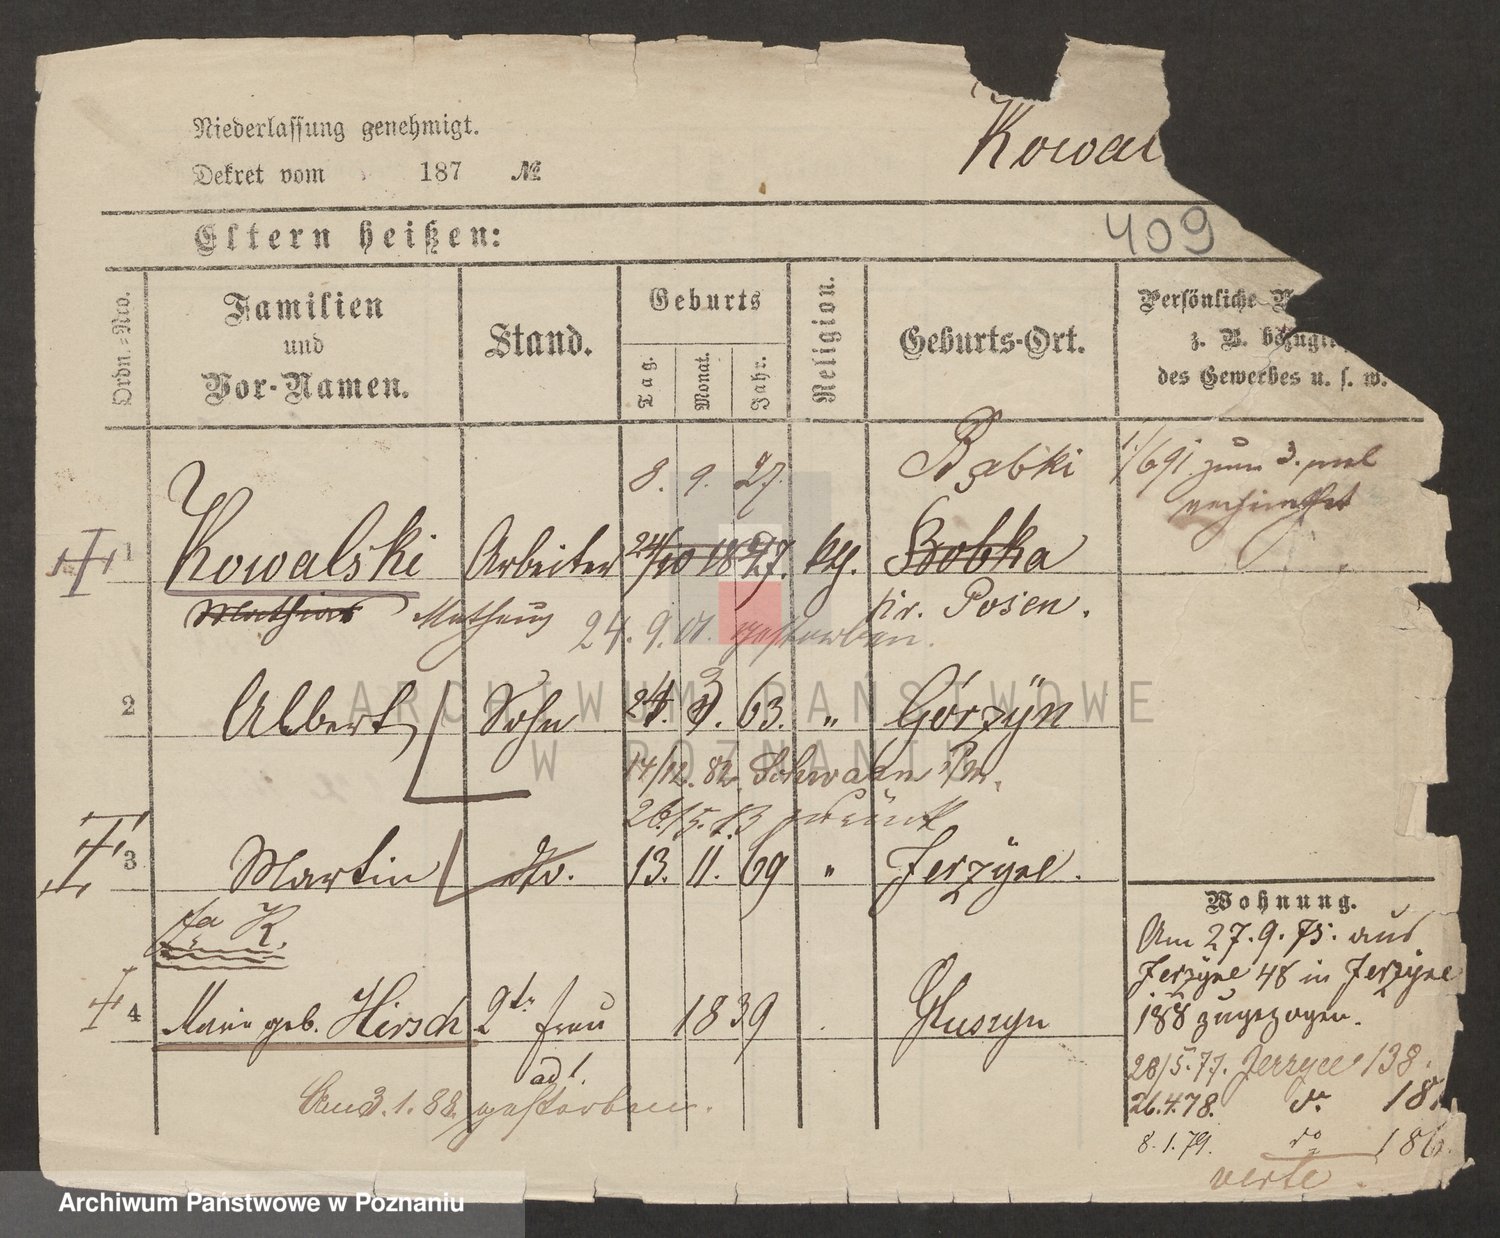 Niederlassung genehmigt.
Dekret vom 187 №
Kowal
409
Eltern heißen:
Ordn.-Nro.
Familien
und
Vor-Namen.
Stand.
Geburts
Tag.
Monat.
Jahr.
Religion.
Geburts-Ort.
Persönliche
z. B. bezügl
des Gewerbes u. s. w.
8. 9. 27. Babki 1/6 91 zum 3. mal
1 Kowalski Arbeiter 24/10 1827. kth. Bobka
Mathias Matheus kr. Posen.
24. 9. 01. gestorben.
2 Albert Sohn 24. 3. 63. " Górzÿn
14/12. 82. Schwaben
26/5. 83 zurück
3 Martin do. 13. 11. 69 " Jerzÿce.
fa K.
4 Marie geb. Hirsch 2te Frau 1839 Gluszyn
ad 1.
Am 3.1.88. gestorben.
Wohnung.
Am 27.9.75. aus
Jerzÿce 48 in Jerzÿce
188 zugezogen.
28/5.77. Jerzyce 138.
26.4.78. do 18
8.1.79. do 186.
verte.
ARCHIWUM PAŃSTWOWE
W POZNANIU
Archiwum Państwowe w Poznaniu